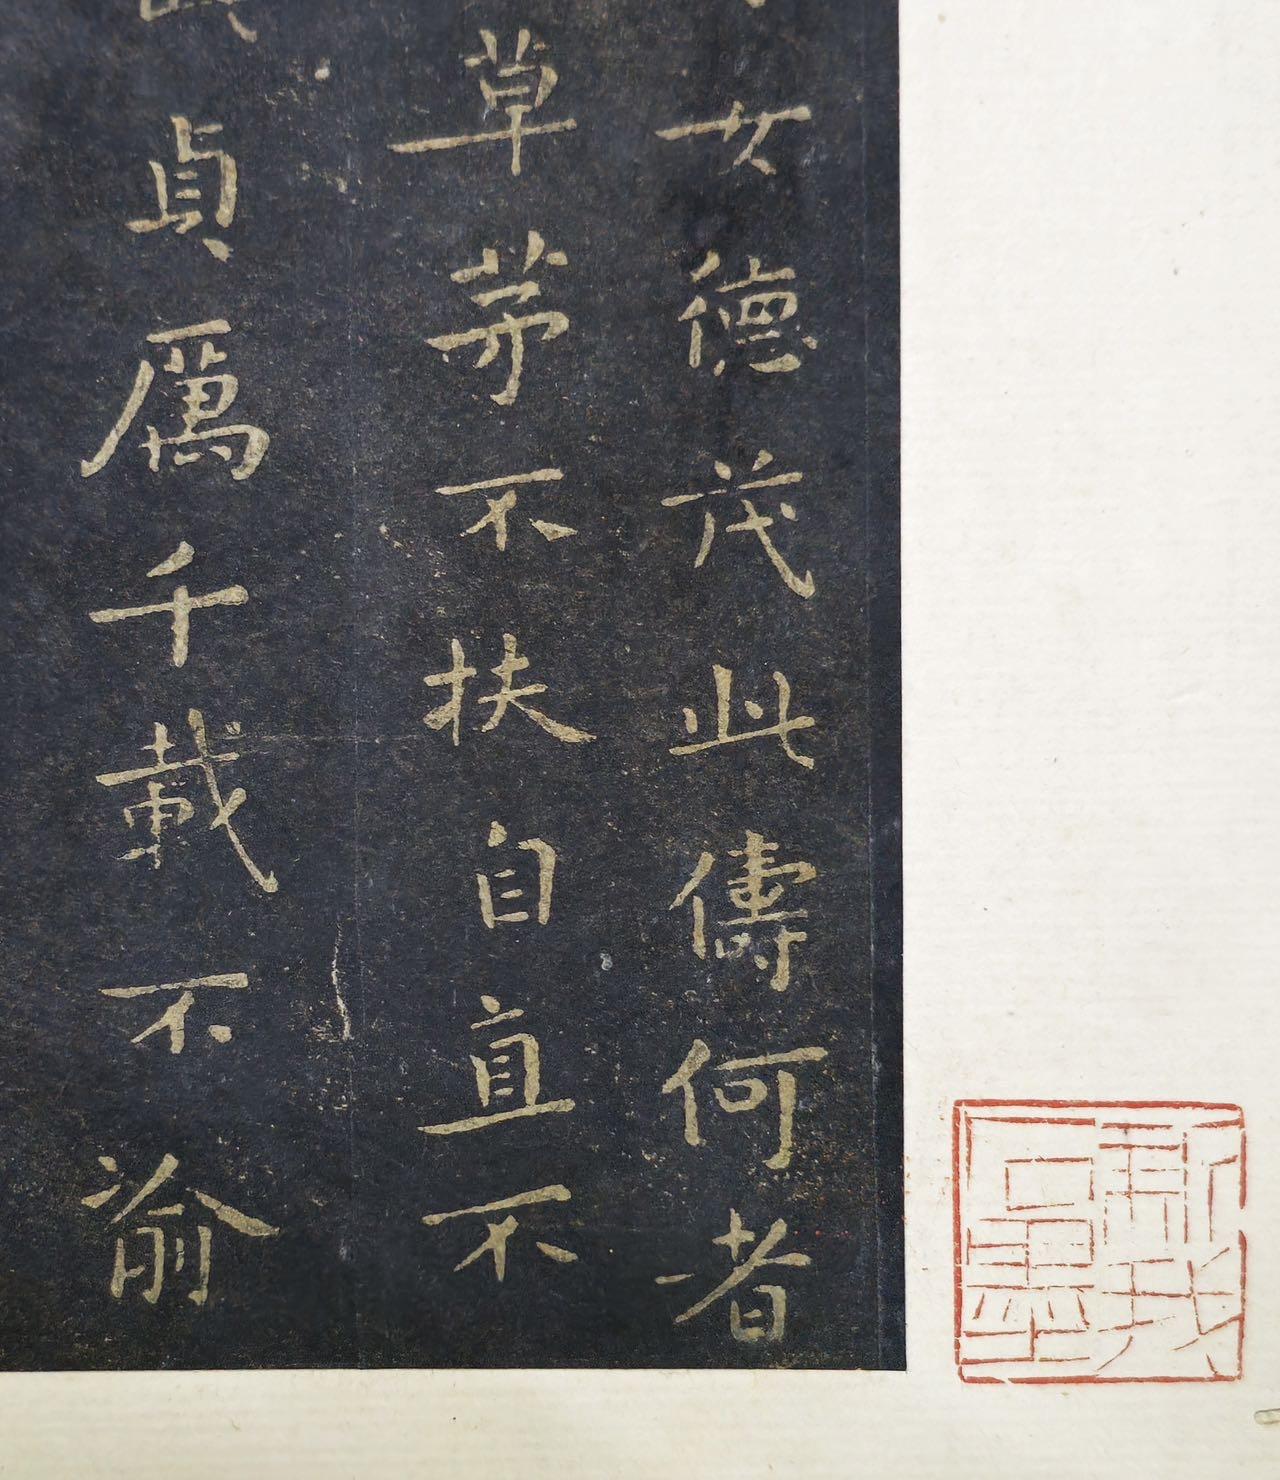 女德茂此傳何者
草茅不扶自直不
貞厲千載不渝